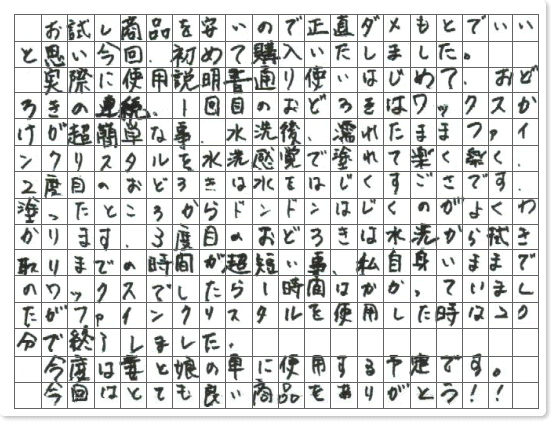 お試し商品を安いので正直ダメもとでいい
と思い今回、初めて購入いたしました。
実際に使用説明書通り使いはじめて、おど
ろきの連続、1回目のおどろきはワックスか
けが超簡単な事、水洗後、濡れたままファイ
ンクリスタルを水洗感覚で塗れて楽く楽く、
2度目のおどろきは水をはじくすごさです、
塗ったところからドンドンはじくのがよくわ
かります、3度目のおどろきは水洗から拭き
取りまでの時間が超短い事、私自身いままで
のワックスでしたら1時間はかかっていまし
たがファインクリスタルを使用した時は20
分で終了しました。
今度は妻と娘の車に使用する予定です。
今回はとても良い商品をありがとう!!